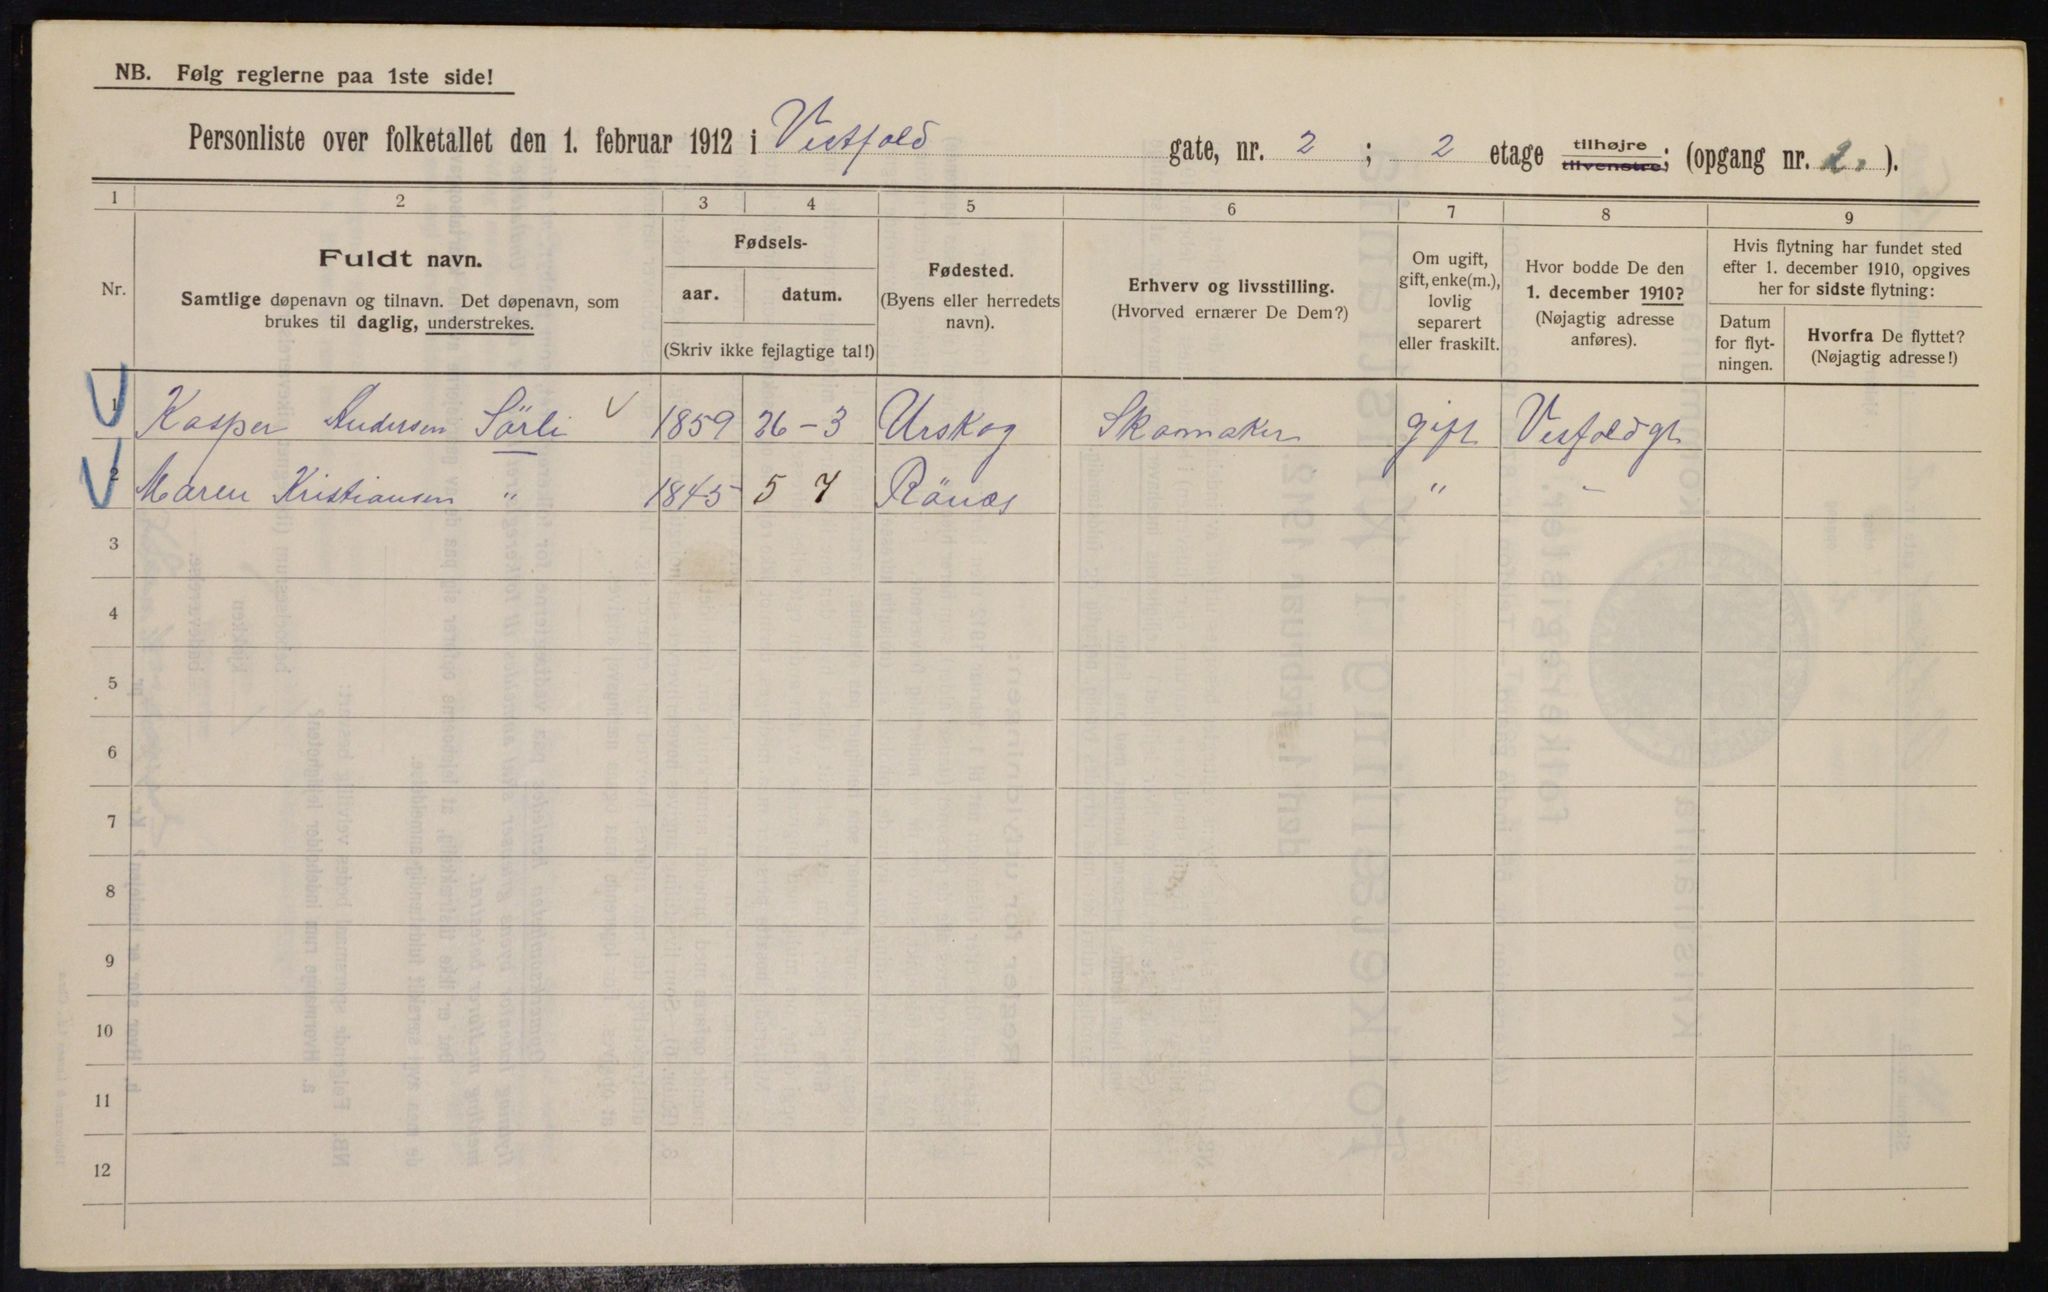 NB. Følg reglerne paa 1ste side!
Personliste over folketallet den 1. februar 1912 i Vestfold gate, nr. 2 ; 2 etage tilhøjre tilvenstre; (opgang nr. 2. ).
1 2 3 4 5 6 7 8 9
Nr.
Fuldt navn.
Samtlige døpenavn og tilnavn. Det døpenavn, som
brukes til daglig, understrekes.
Fødsels-
aar. datum.
(Skriv ikke fejlagtige tal!)
Fødested.
(Byens eller herredets
navn).
Erhverv og livsstilling.
(Hvorved ernærer De Dem?)
Om ugift,
gift, enke(m.),
lovlig
separert
eller fraskilt.
Hvor bodde De den
1. december 1910?
(Nøjagtig adresse
anføres).
Hvis flytning har fundet sted
efter 1. december 1910, opgives
her for sidste flytning:
Datum
for flyt-
ningen.
Hvorfra De flyttet?
(Nøjagtig adresse!)
1 Kasper Andersen Sörli 1859 26 – 3 Urskog Skomaker gift Vesfoldgt
2 Maren Kristiansen " 1845 5 7 Rönæs " –
3
4
5
6
7
8
9
10
11
12